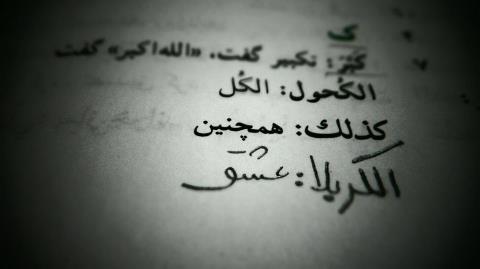 ک
کَبَّرَ: تکبیر گفت، «الله‌اکبر» گفت
الکُحول: الکُل
کذلك: همچنین
الکربلا: عشق